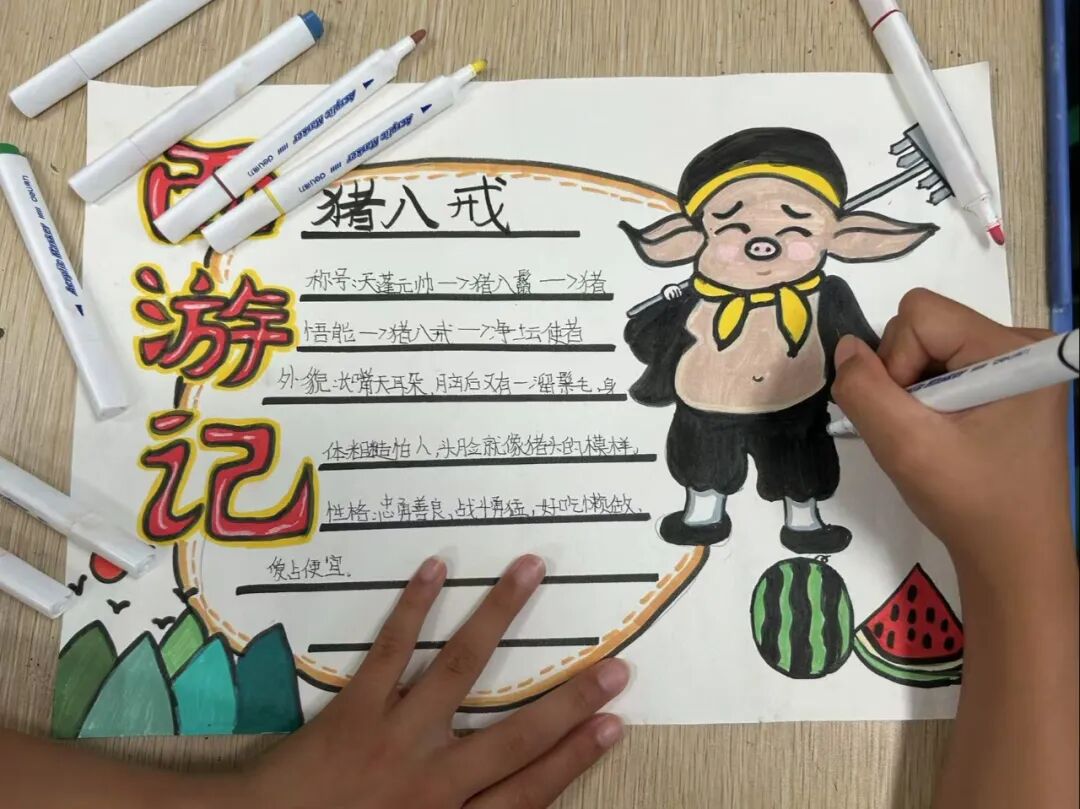 西
游
记
猪八戒
称号:天蓬元帅—>猪八鬣—>猪
悟能—>猪八戒—>净坛使者
外貌:长嘴大耳朵,脑后又有一溜鬃毛,身
体粗糙怕人,头脸就像猪头的模样。
性格:忠勇善良、战斗勇猛,好吃懒做、
爱占便宜。
Acrylic Marker
Acrylic Marker
Acrylic Marker